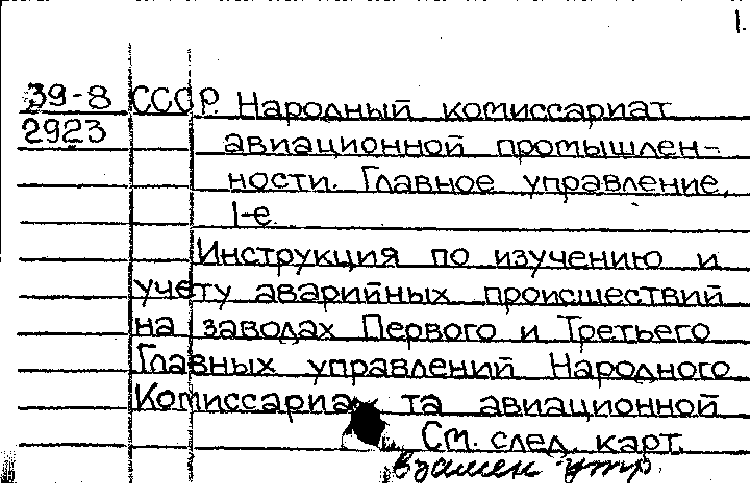 1.
39-8 СССР. Народный комиссариат
2923 авиационной промышлен-
ности. Главное управление,
1-е.
Инструкция по изучению и
учету аварийных происшествий
на заводах Первого и Третьего
Главных управлений Народного
Комиссариа та авиационной
См. след. карт.
взамен утр.